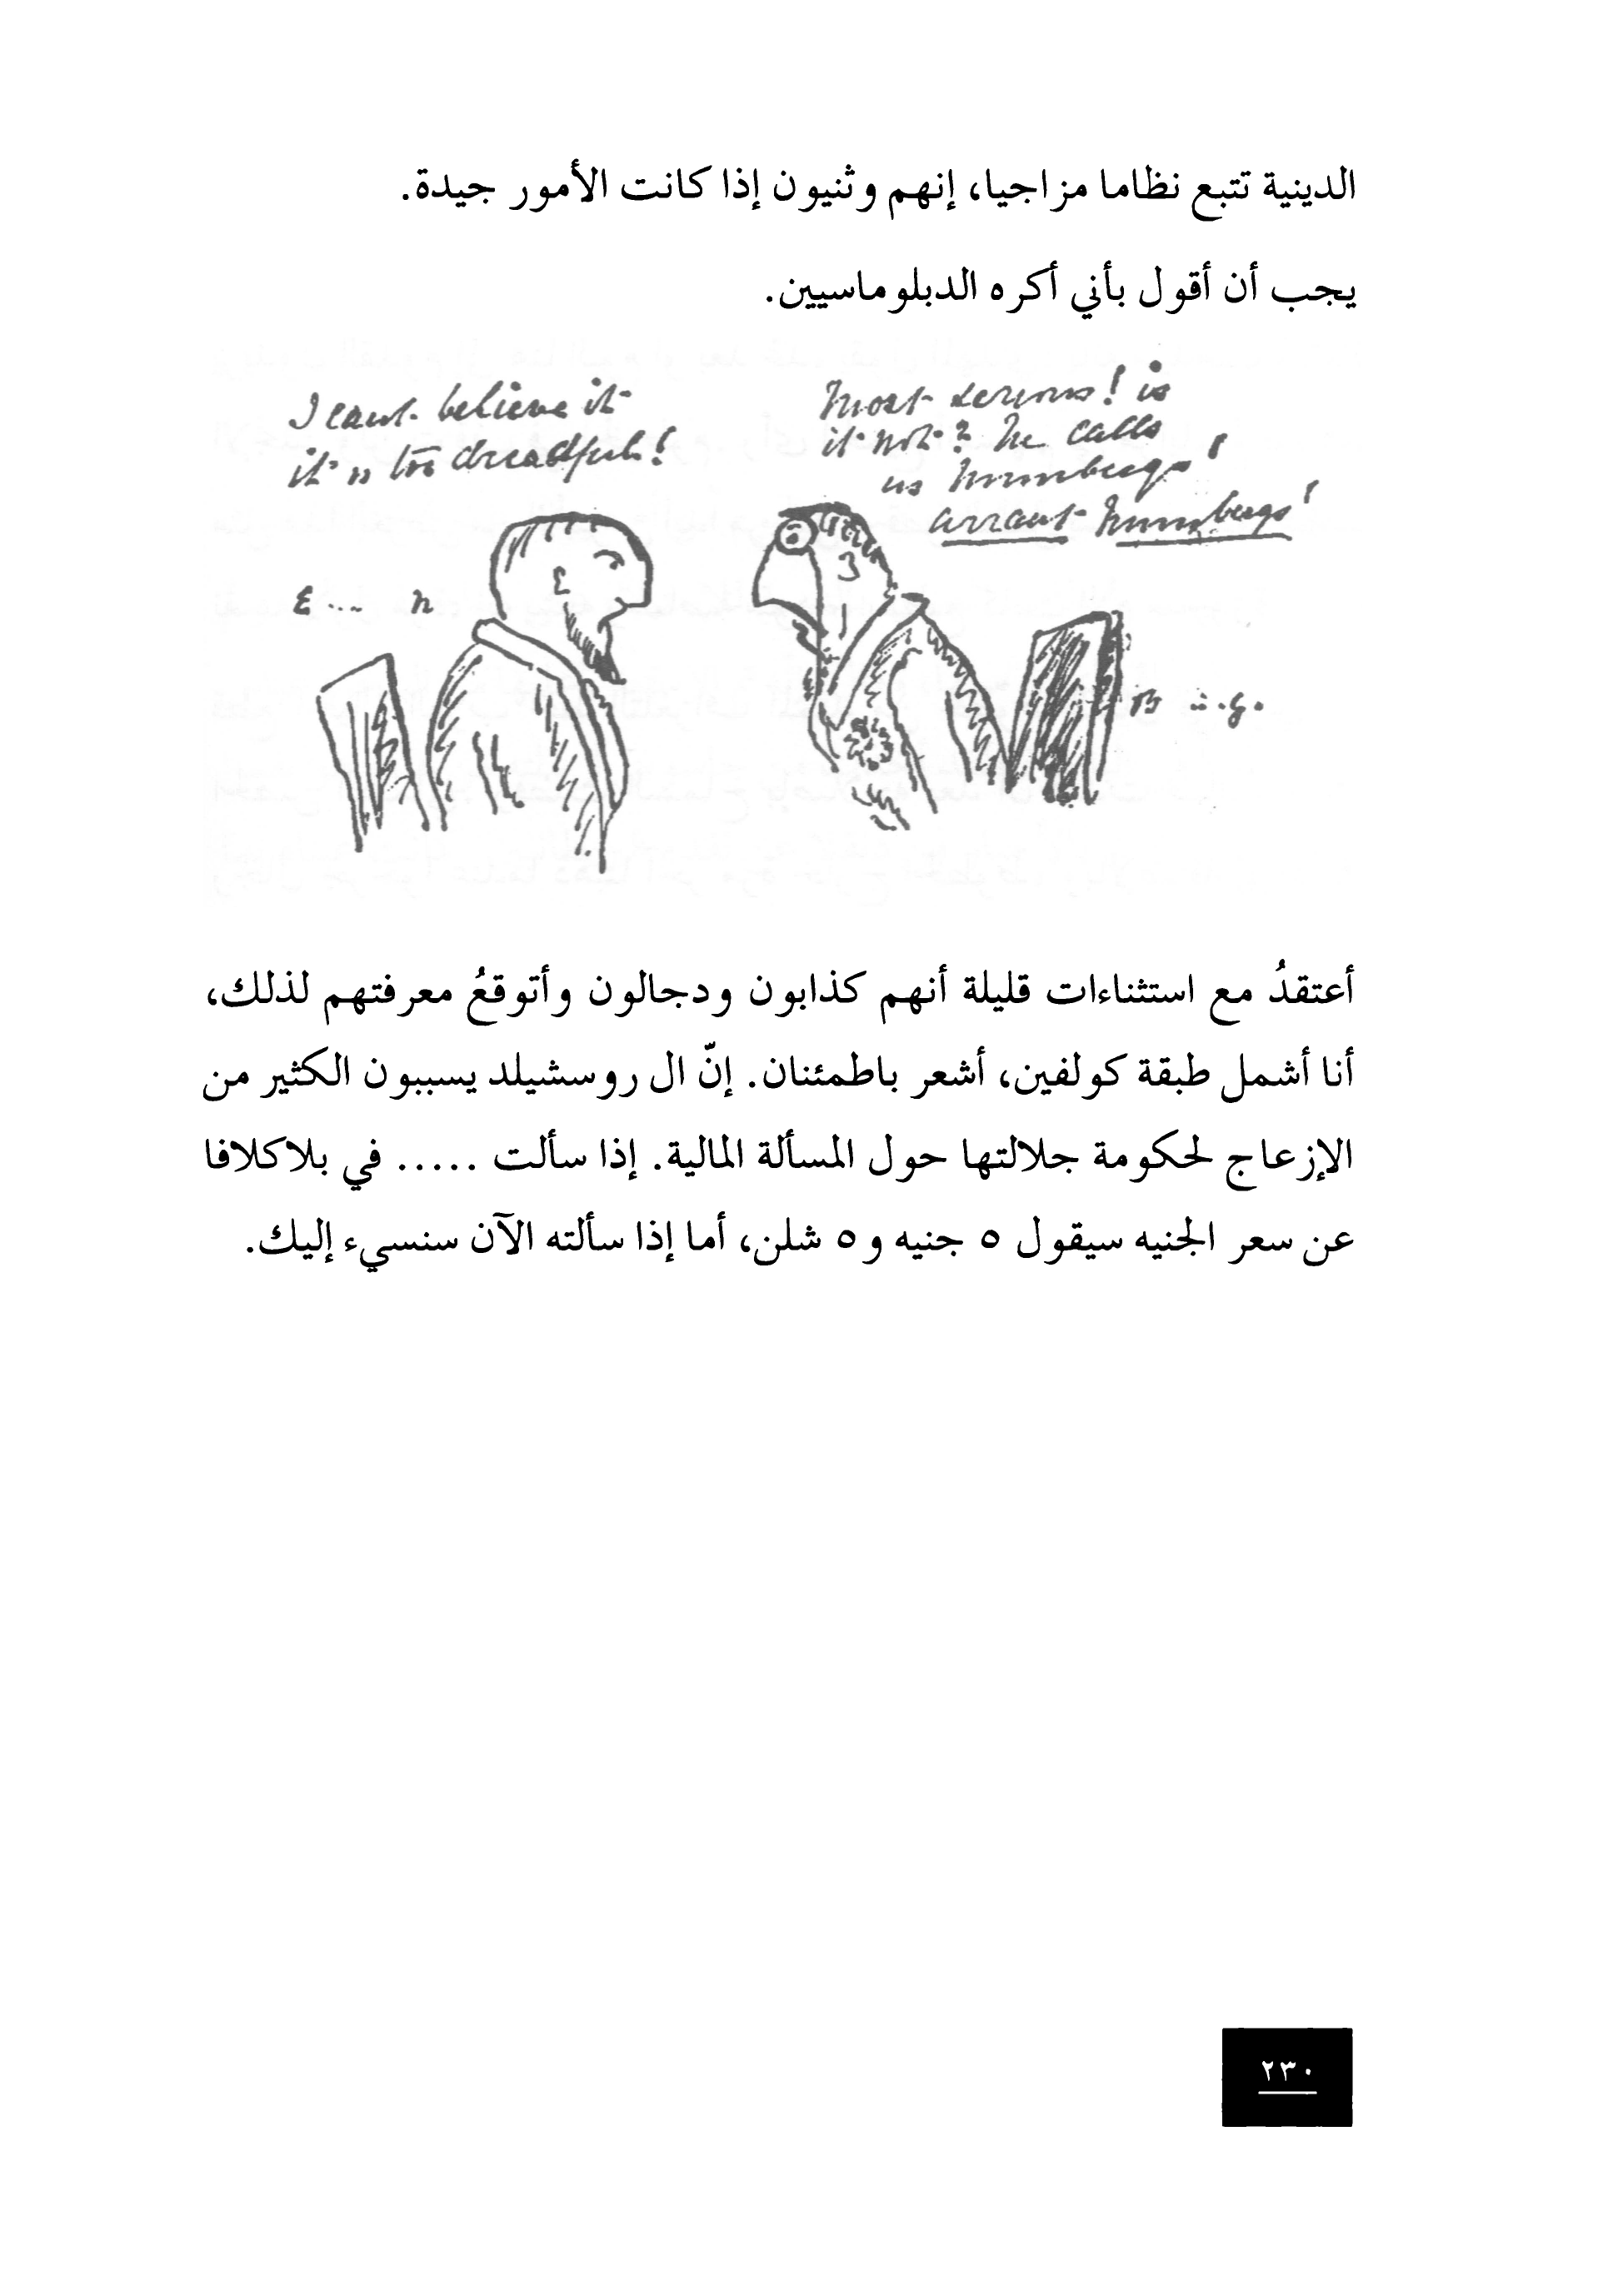 الدينية تتبع نظاما مزاجيا، إنهم وثنيون إذا كانت الأمور جيدة.
يجب أن أقول بأني أكره الدبلوماسيين.
I cant believe it
it is too dreadful!
Most serious! is
it not? he calls
us humbugs!
arrant humbugs!
E... n
B ...g.
أعتقدُ مع استثناءات قليلة أنهم كذابون ودجالون وأتوقعُ معرفتهم لذلك،
أنا أشمل طبقة كولفين، أشعر باطمئنان. إنّ ال روسشيلد يسببون الكثير من
الإزعاج لحكومة جلالتها حول المسألة المالية. إذا سألت ..... في بلاكلافا
عن سعر الجنيه سيقول ٥ جنيه و٥ شلن، أما إذا سألته الآن سنسيء إليك.
٢٣٠